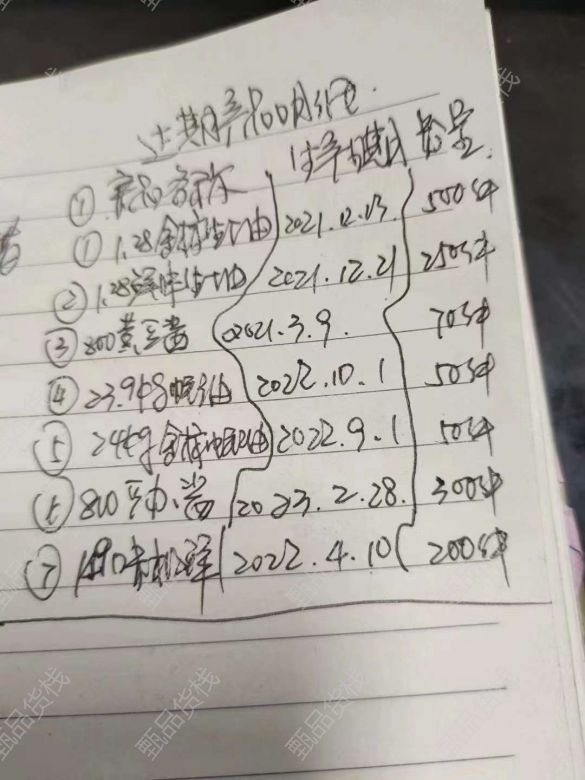 过期产品明细
① 产品名称 生产日期 数量
① 1.28金标生抽 2021.12.13 500件
② 1.28鲜味生抽 2021.12.21 250件
③ 800黄豆酱 2021.3.9. 70件
④ 23.9kg 2022.10.1 50件
⑤ 24kg金标 2022.9.1 50件
⑥ 800 酱 2023.2.28. 300件
⑦ 鲜 2022.4.10 200件
甄品货栈